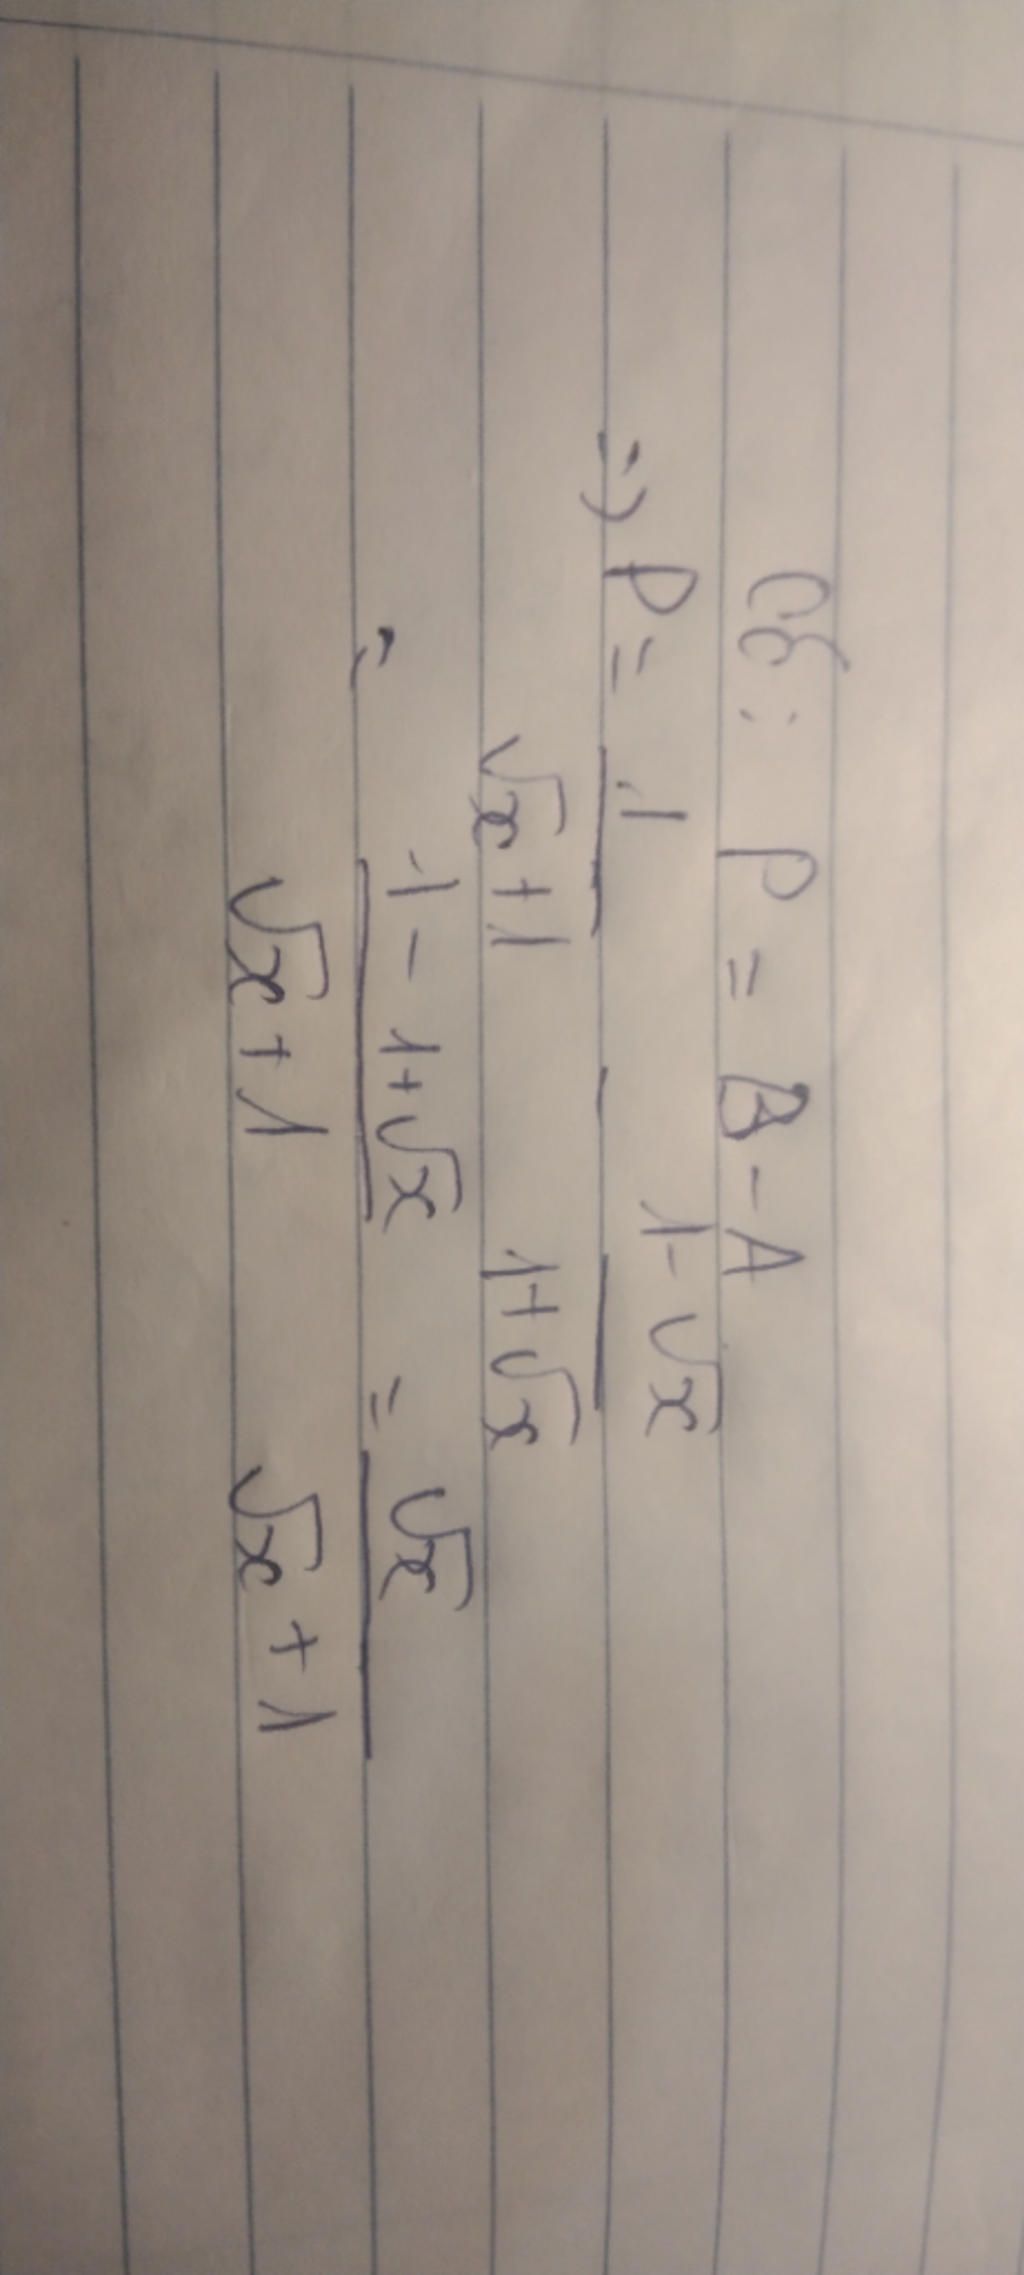 Có: P = B - A
=> P = 1/(√x + 1) - (1 - √x)/(1 + √x)
= (1 - 1 + √x)/(√x + 1) = √x/(√x + 1)